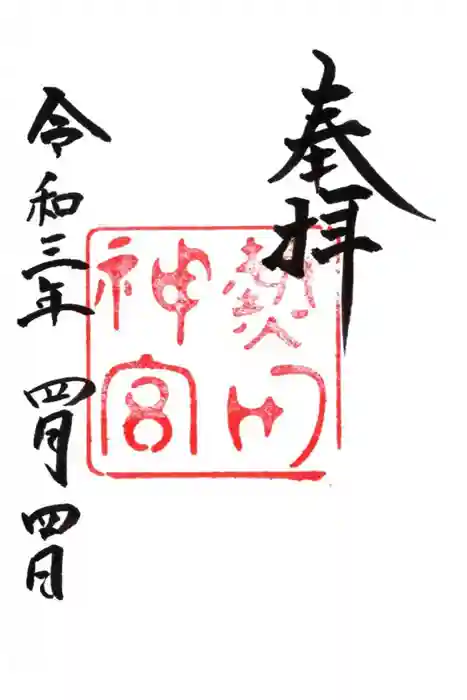 奉拝
熱田
神宮
令和三年四月四日